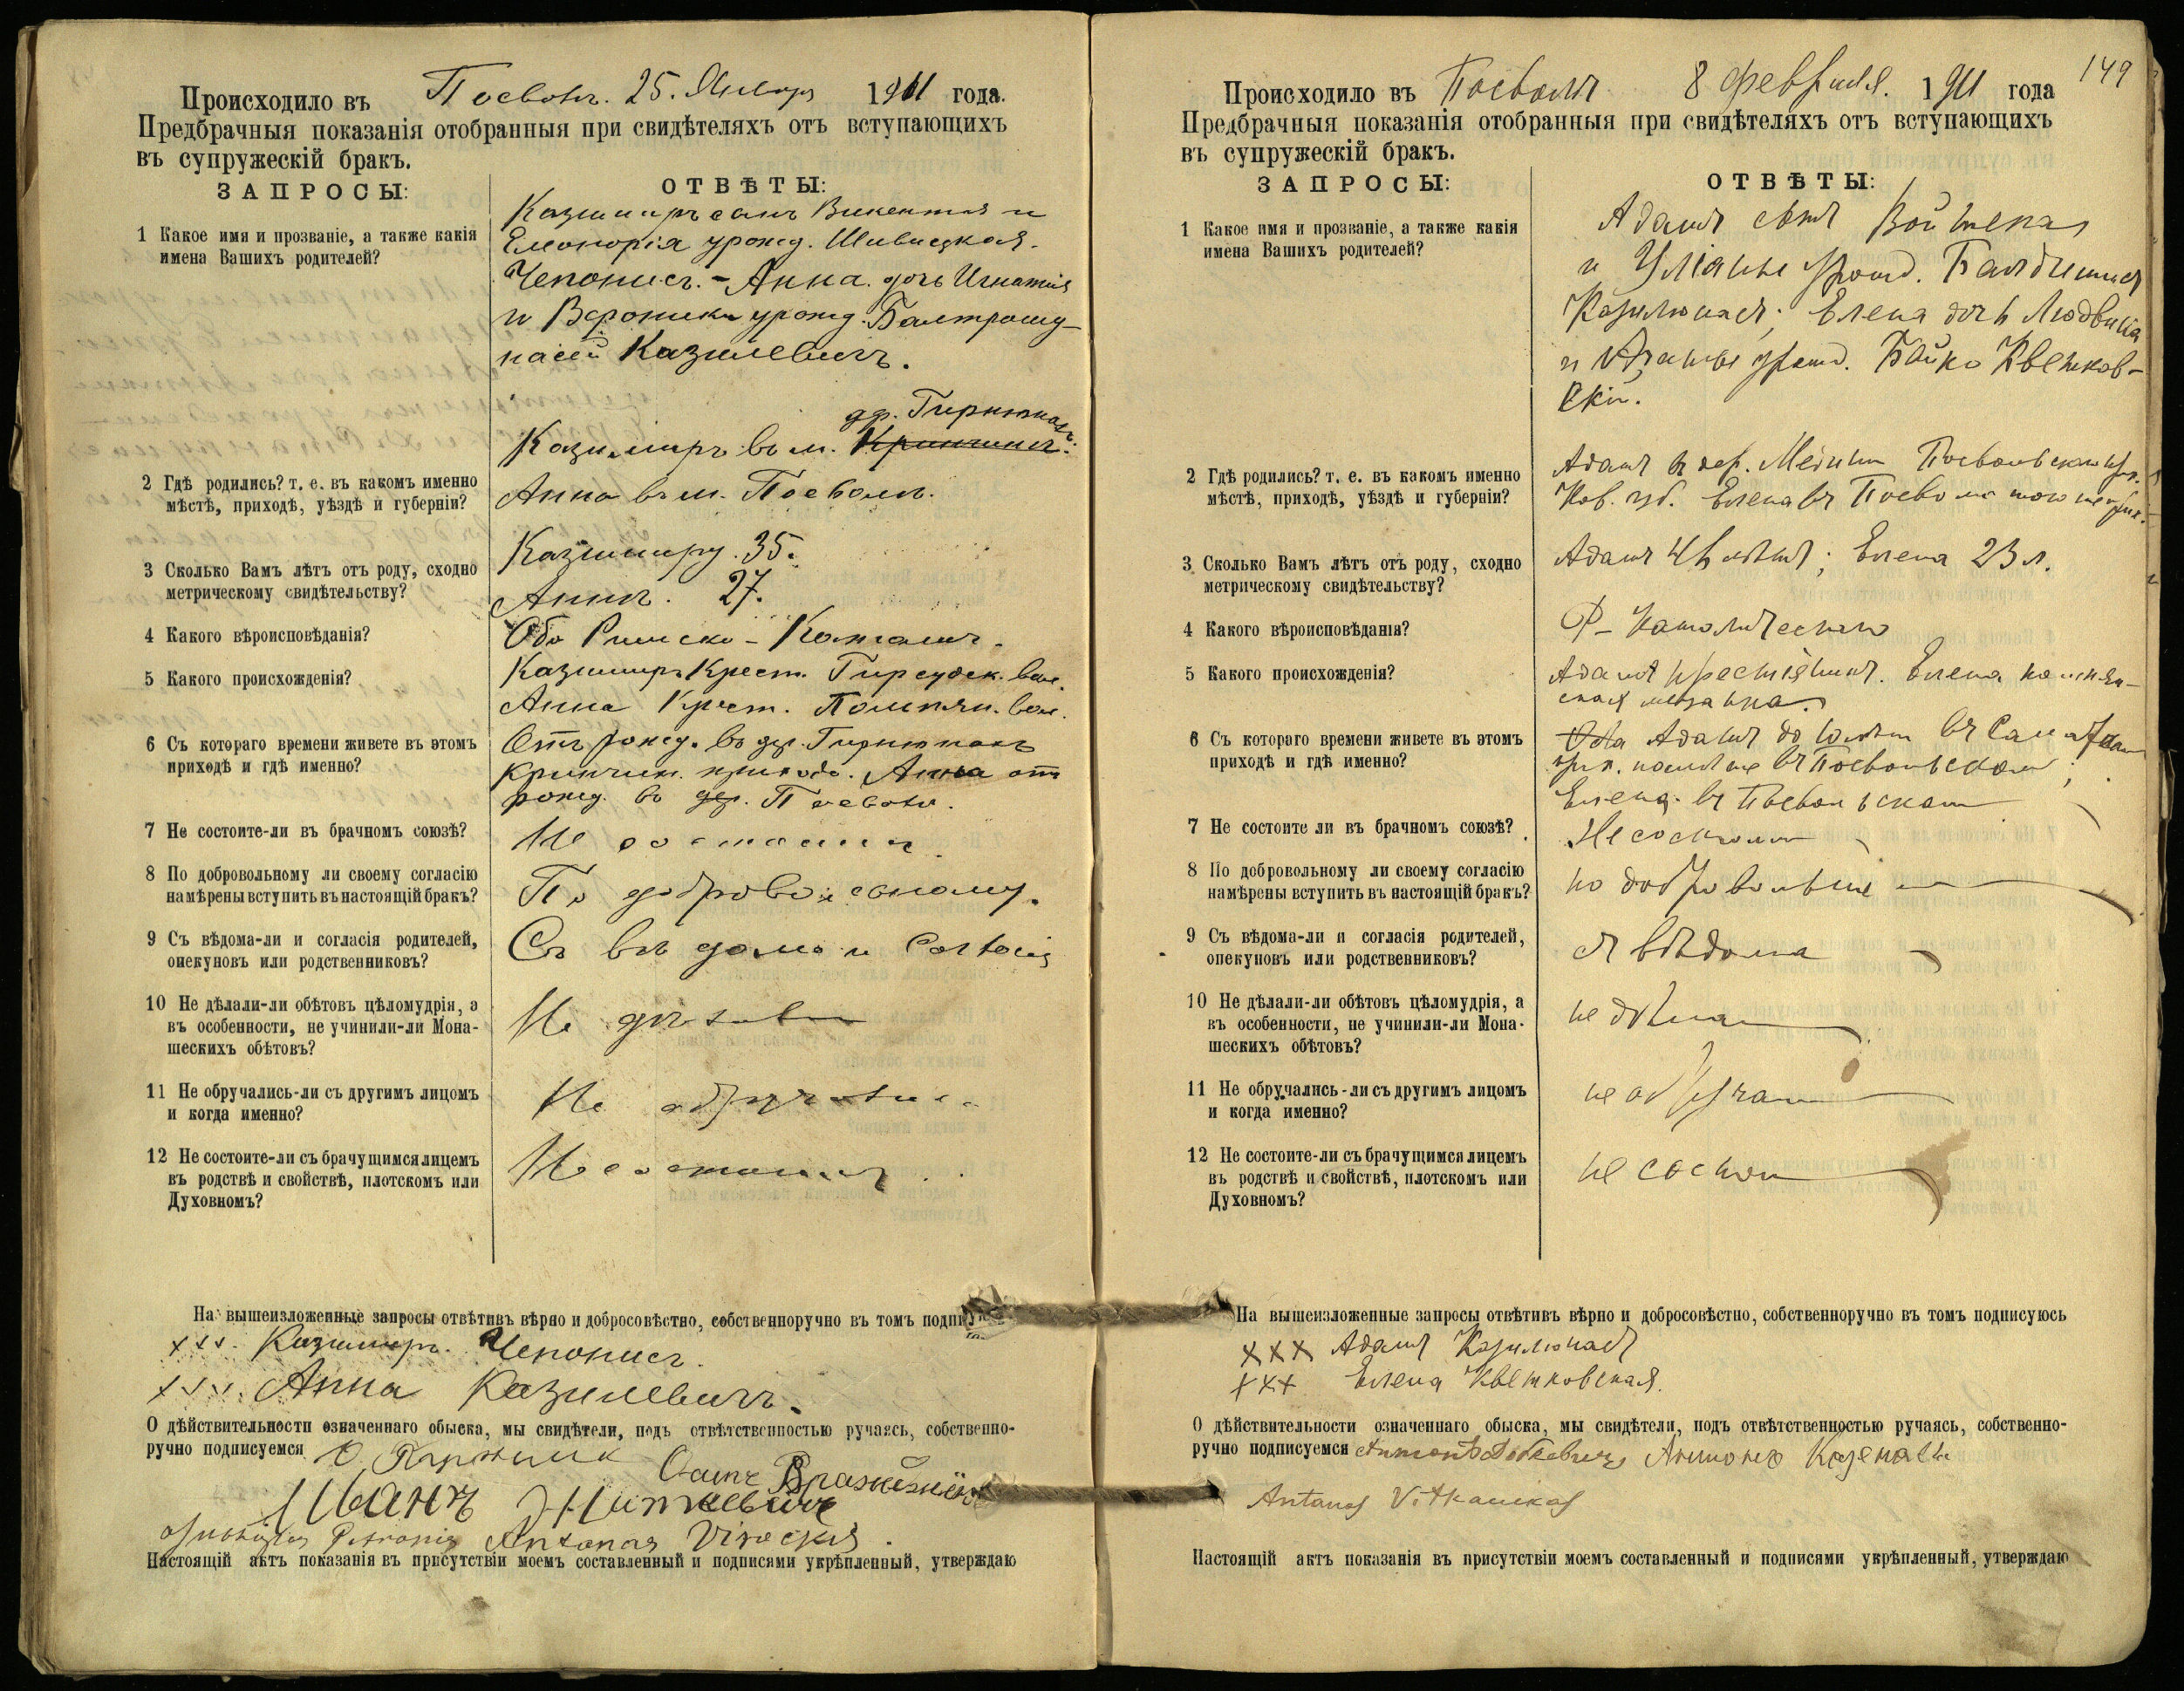 Происходило въ Посволѣ. 25. Января 1911 года.
Предбрачныя показанія отобранныя при свидѣтеляхъ отъ вступающихъ
въ супружескій бракъ.
ЗАПРОСЫ:
ОТВѢТЫ:
1 Какое имя и прозваніе, а также какія
имена Вашихъ родителей?
Казимиръ сынъ Викентія и
Елеонорія урожд.
Чепонисъ. - Анна. дочь Игнатія
и Вероники урожд.
Казилевичъ.
2 Гдѣ родились? т. е. въ какомъ именно
мѣстѣ, приходѣ, уѣздѣ и губерніи?
др.
Казимиръ въ м. Кринчинѣ.
Анна въ м. Посволѣ.
3 Сколько Вамъ лѣтъ отъ роду, сходно
метрическому свидѣтельству?
Казимиру. 35.
Аннѣ. 27.
4 Какого вѣроисповѣданія?
Оба Римско-Католич.
5 Какого происхожденія?
Казимиръ Крест. Гирсудск. вол.
Анна Крест. Помпян. вол.
6 Съ котораго времени живете въ этомъ
приходѣ и гдѣ именно?
Отъ рожд. въ др.
Кринчин. прихода. Анна отъ
рожд. въ др. Посволи.
7 Не состоите-ли въ брачномъ союзѣ?
Не состоимъ.
8 По добровольному ли своему согласію
намѣрены вступить въ настоящій бракъ?
По добровольному.
9 Съ вѣдома-ли и согласія родителей,
опекуновъ или родственниковъ?
Съ вѣдома и согласія
10 Не дѣлали-ли обѣтовъ цѣломудрія, а
въ особенности, не учинили-ли Мона-
шескихъ обѣтовъ?
Не дѣлали
11 Не обручались-ли съ другимъ лицомъ
и когда именно?
Не обручались
12 Не состоите-ли съ брачущимся лицемъ
въ родствѣ и свойствѣ, плотскомъ или
Духовномъ?
Не состоимъ
На вышеизложенные запросы отвѣтивъ вѣрно и добросовѣстно, собственноручно въ томъ
xxx. Казимиръ. Чепонисъ.
xxx. Анна Казилевичъ.
О дѣйствительности означеннаго обыска, мы свидѣтели, подъ отвѣтственностью ручаясь, собственно-
ручно подписуемся
Иванъ
Antanas
Настоящій актъ показанія въ присутствіи моемъ составленный и подписями укрѣпленный, утверждаю
149
Происходило въ Посволѣ 8 Февраля. 1911 года
Предбрачныя показанія отобранныя при свидѣтеляхъ отъ вступающихъ
въ супружескій бракъ.
ЗАПРОСЫ:
ОТВѢТЫ:
1 Какое имя и прозваніе, а также какія
имена Вашихъ родителей?
Адамъ сынъ Войтеха
и Уліаны урожд.
Казилюнасъ; Елена дочь Людвика
и урожд. Бойко Кветков-
ски.
2 Гдѣ родились? т. е. въ какомъ именно
мѣстѣ, приходѣ, уѣздѣ и губерніи?
Адамъ въ дер. Посвольскаго
Ков. губ. Елена въ Посволѣ того же прих.
3 Сколько Вамъ лѣтъ отъ роду, сходно
метрическому свидѣтельству?
Адамъ лѣтъ; Елена 23 л.
4 Какого вѣроисповѣданія?
Р-Католическаго
5 Какого происхожденія?
Адамъ крестіянинъ. Елена
ская мѣщанка.
6 Съ котораго времени живете въ этомъ
приходѣ и гдѣ именно?
Адамъ до лѣтъ въ
прих. въ Посвольскомъ;
Елена въ Посвольскомъ
7 Не состоите ли въ брачномъ союзѣ?
Не состоимъ
8 По добровольному ли своему согласію
намѣрены вступить въ настоящій бракъ?
по добровольне
9 Съ вѣдома-ли и согласія родителей,
опекуновъ или родственниковъ?
съ вѣдома
10 Не дѣлали-ли обѣтовъ цѣломудрія, а
въ особенности, не учинили-ли Мона-
шескихъ обѣтовъ?
не дѣлали
11 Не обручались-ли съ другимъ лицомъ
и когда именно?
не обручали
12 Не состоите-ли съ брачущимся лицемъ
въ родствѣ и свойствѣ, плотскомъ или
Духовномъ?
не состои
На вышеизложенные запросы отвѣтивъ вѣрно и добросовѣстно, собственноручно въ томъ подписуюсь
xxx Адамъ Казилюнасъ
xxx Елена Кветковская.
О дѣйствительности означеннаго обыска, мы свидѣтели, подъ отвѣтственностью ручаясь, собственно-
ручно подписуемся Антонъ
Antanas Vitkauskas
Настоящій актъ показанія въ присутствіи моемъ составленный и подписями укрѣпленный, утверждаю